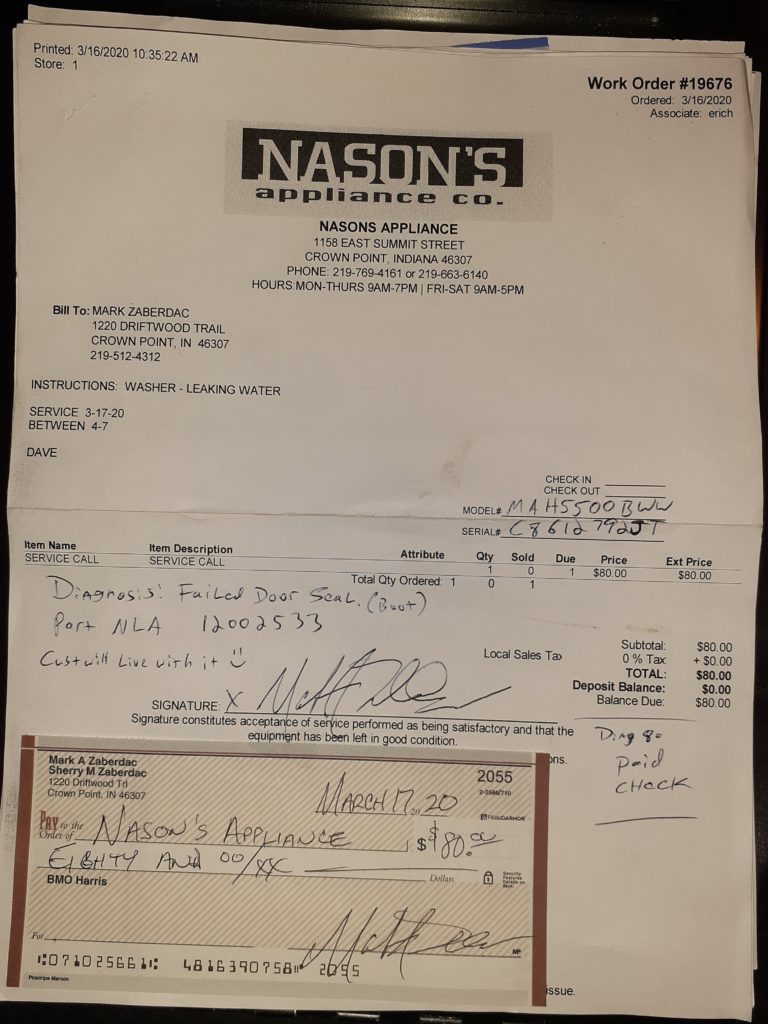 Printed: 3/16/2020 10:35:22 AM
Store: 1
Work Order #19676
Ordered: 3/16/2020
Associate: erich
NASON'S
appliance co.
NASONS APPLIANCE
1158 EAST SUMMIT STREET
CROWN POINT, INDIANA 46307
PHONE: 219-769-4161 or 219-663-6140
HOURS:MON-THURS 9AM-7PM | FRI-SAT 9AM-5PM
Bill To: MARK ZABERDAC
1220 DRIFTWOOD TRAIL
CROWN POINT, IN 46307
219-512-4312
INSTRUCTIONS: WASHER - LEAKING WATER
SERVICE 3-17-20
BETWEEN 4-7
DAVE
CHECK IN
CHECK OUT
MODEL# MAH5500BWW
SERIAL# C8612792JT
Item Name Item Description Attribute Qty Sold Due Price Ext Price
SERVICE CALL SERVICE CALL 1 0 1 $80.00 $80.00
Total Qty Ordered: 1 0 1
Diagnosis: Failed Door Seal. (Boot)
Part NLA 12002533
Cust will Live with it
Local Sales Tax
Subtotal: $80.00
0 % Tax: + $0.00
TOTAL: $80.00
Deposit Balance: $0.00
Balance Due: $80.00
SIGNATURE: X
Signature constitutes acceptance of service performed as being satisfactory and that the
equipment has been left in good condition.
ons.
Diag 80
Paid
CHECK
Mark A Zaberdac
Sherry M Zaberdac
1220 Driftwood Trl
Crown Point, IN 46307
2055
2-2566/710
MARCH 17, 20 20
FRAUDARMOR
PAY to the
Order of NASON'S APPLIANCE $ $80.00
EIGHTY AND 00/XX Dollars
Security
Features
Details on
Back.
BMO Harris
For
MP
071025661 4816390758 2055
Pinstripe Maroon
issue.